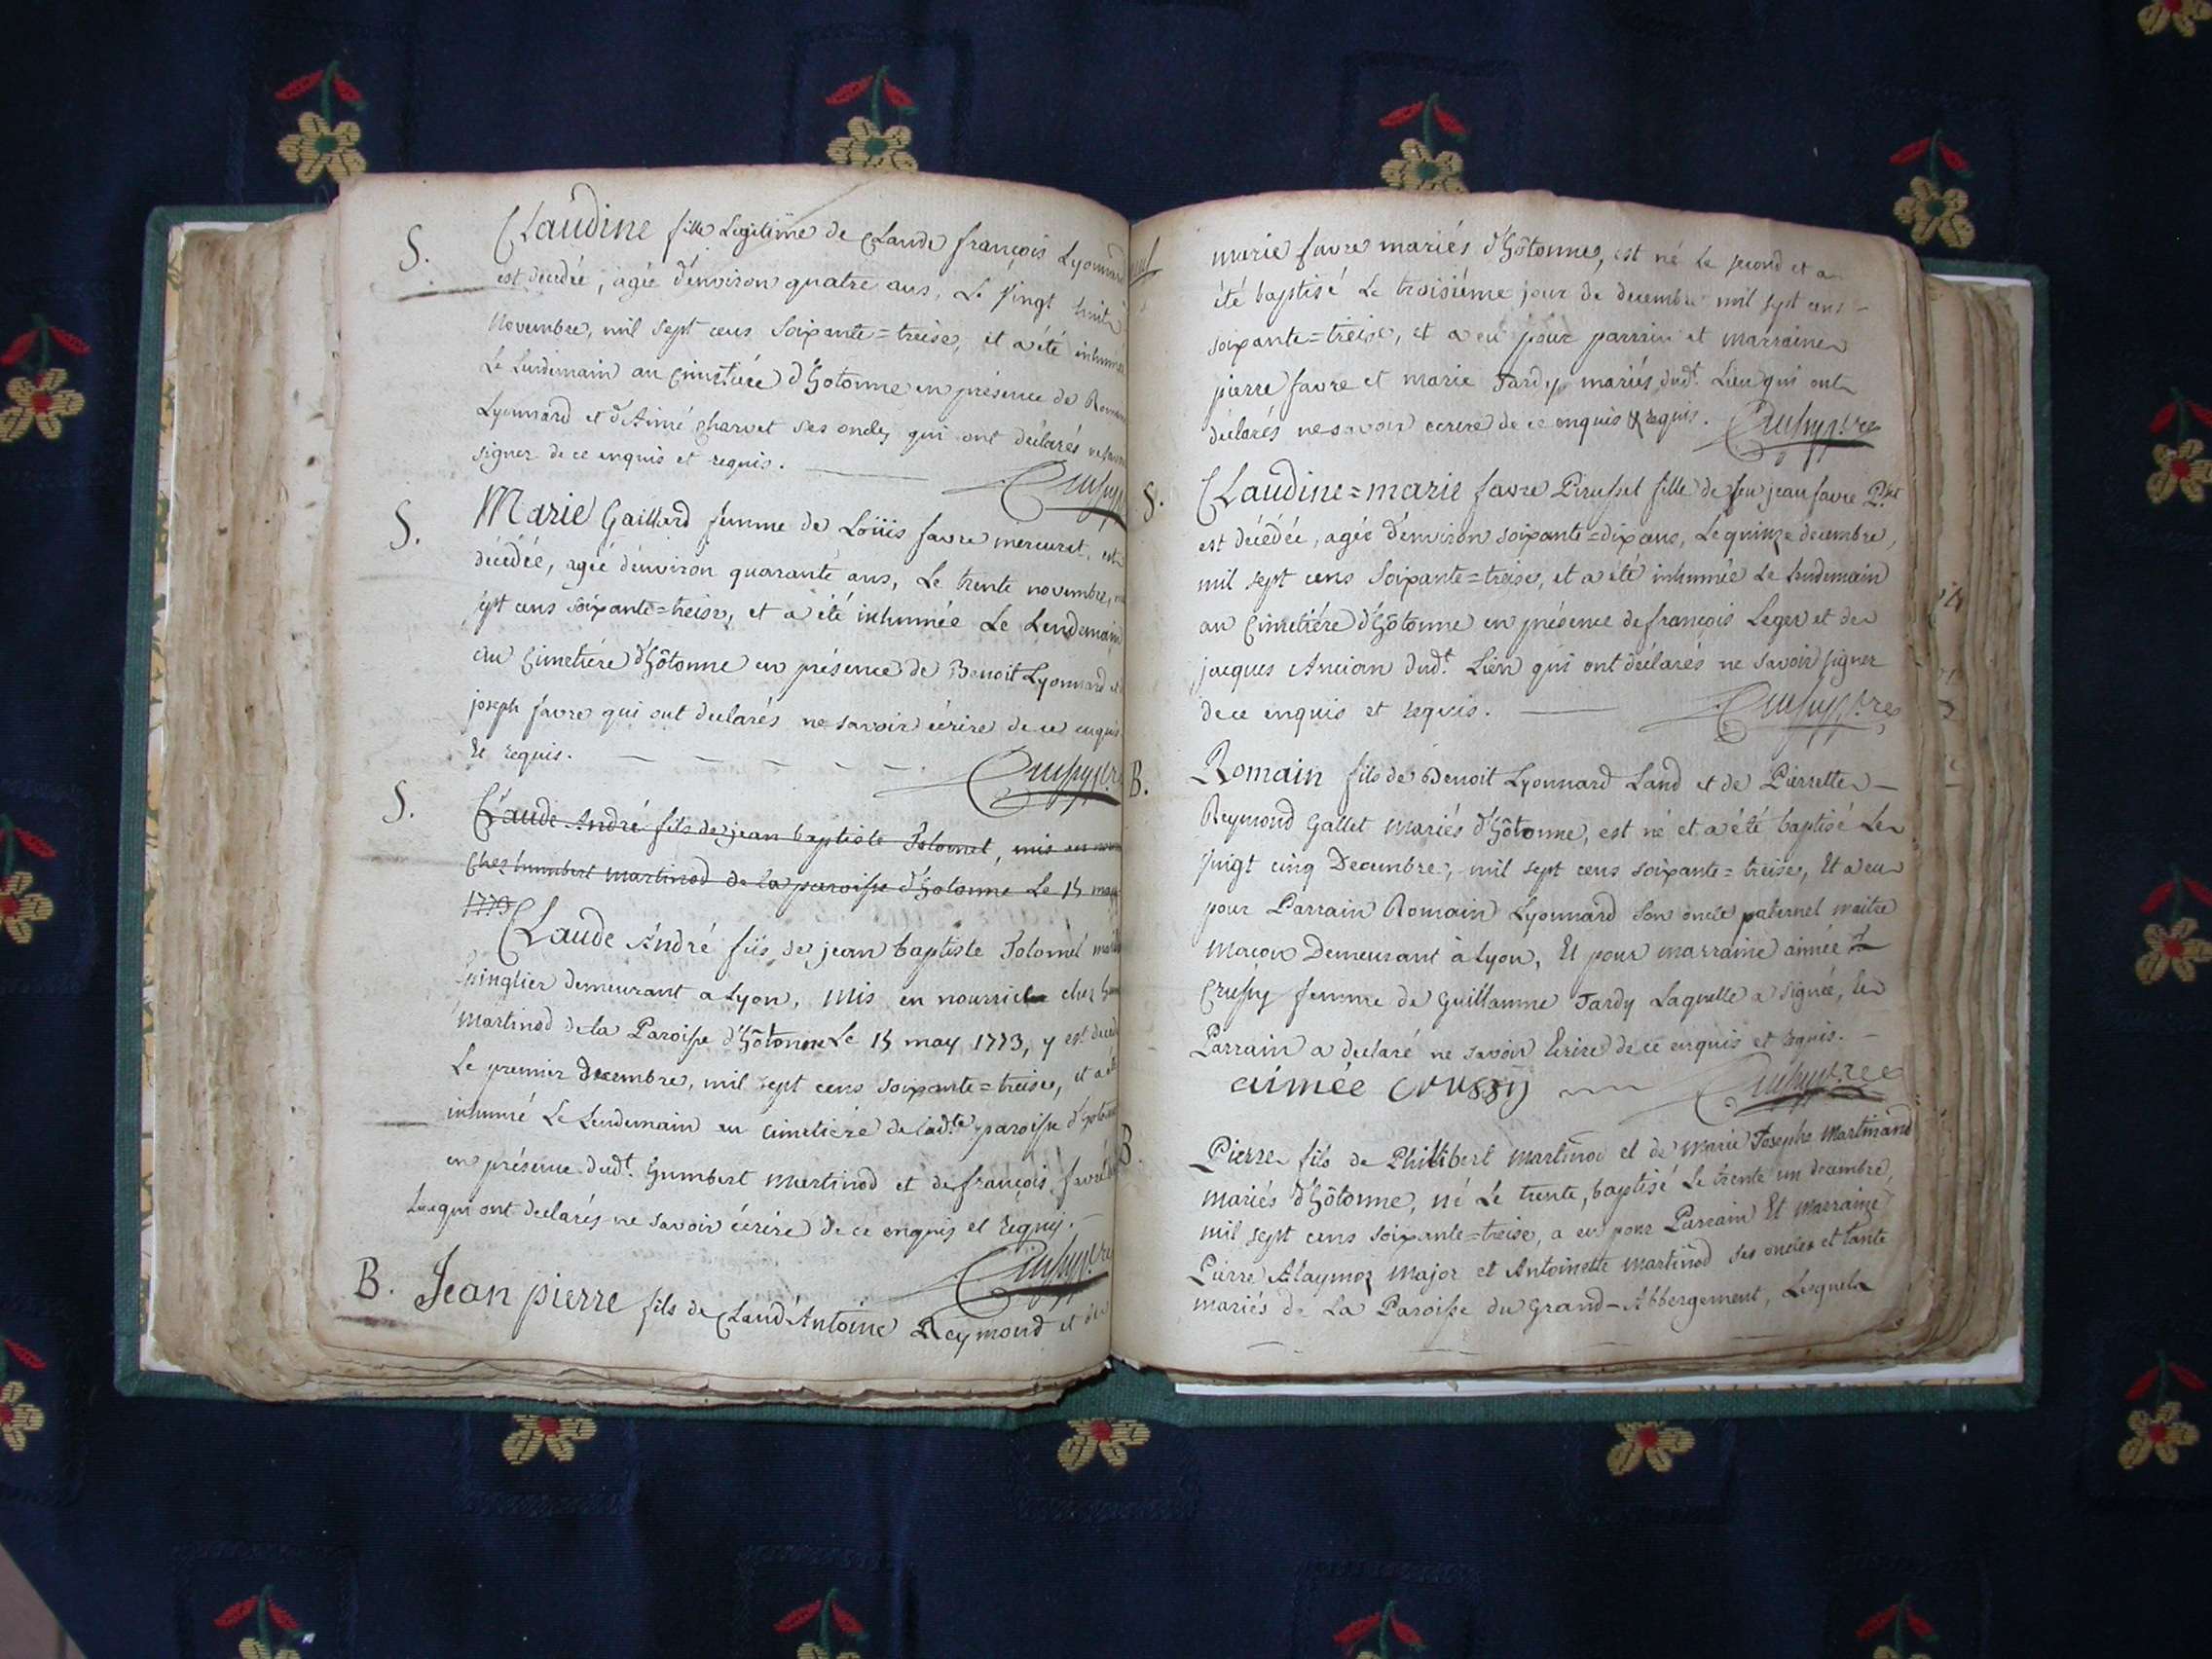 S. Claudine fille Legitime de Claude françois Lyonnard
est decedée, agée d'environ quatre ans, Le vingt huit
Novembre, mil sept cens soixante=treise, et a été inhumée
Le Lendemain au cimetiére d'hotonne en présence de Romain
Lyonnard et d'Aimé Charvet ses oncles qui ont déclarés ne savoir
signer de ce enquis et requis.
S. Marie Gaillard femme de Loüis favre mercurat, est
décédée, agée d'environ quarante ans, Le trente novembre, mil
sept cens soixante=treise, et a été inhumée Le Lendemain
au cimetiére d'hôtonne en présence de Benoit Lyonnard et
joseph favre qui ont declarés ne savoir écrire de ce enquis
et requis.
S. Claude André fils de jean baptiste Tolomet, mis en
chez humbert martinod de la paroisse d'hotonne Le 15 may
1773
Claude André fils de jean baptiste Tolomet
Epinglier demeurant a Lyon, mis en nourrice chez
martinod de la Paroisse d'hôtonne Le 15 may 1773, y est decedé
Le premier decembre, mil sept cens soixante=treise, et a été
inhumé Le Lendemain au cimetiére de ladte paroisse d'hotonne
en présence dudt. humbert martinod et de françois favre
Lieu qui ont declarés ne savoir écrire de ce enquis et requis.
B. Jean pierre fils de Claud'Antoine Reymond et de
marie favre mariés d'hôtonne, est né le second et a
été baptisé Le troisiéme jour de decembre mil sept cens
soixante=treise, et a eu pour parrain et marraine
pierre favre et marie Tardy mariés dudt. Lieu qui ont
déclarés ne savoir ecrire de ce enquis & requis.
S. Claudine=marie favre Perusset fille de feu jean favre
est décédée, agée d'environ soixante=dix ans, Le quinze decembre,
mil sept cens soixante=treise, et a été inhumée Le Lendemain
au cimetiére d'hôtonne en présence de françois Leger et de
jacques Ancian dudt. Lieu qui ont déclarés ne savoir signer
de ce enquis et requis.
B. Romain fils de Benoit Lyonnard Land et de Pierrette
Reymond Gallet mariés d'hôtonne, est né et a été baptisé Le
vingt cinq Decembre, mil sept cens soixante=treise, Et a eu
pour Parrain Romain Lyonnard son oncle paternel maitre
macon Demeurant à Lyon, Et pour marraine aimée
Crussy femme de Guillaume Tardy Laquelle a signée, Le
Parrain a declaré ne savoir Ecrire de ce enquis et requis.
aimée Crussy
B. Pierre fils de Philibert martinod et de marie Josephe Martinand
mariés d'hôtonne, né Le trente, baptisé Le trente un decembre,
mil sept cens soixante=treise, a eu pour Parrain Et marraine
Pierre Alaymoz Major et Antoinette martinod ses oncles et tante
mariés de La Paroisse du Grand-Abbergement, Lesquels